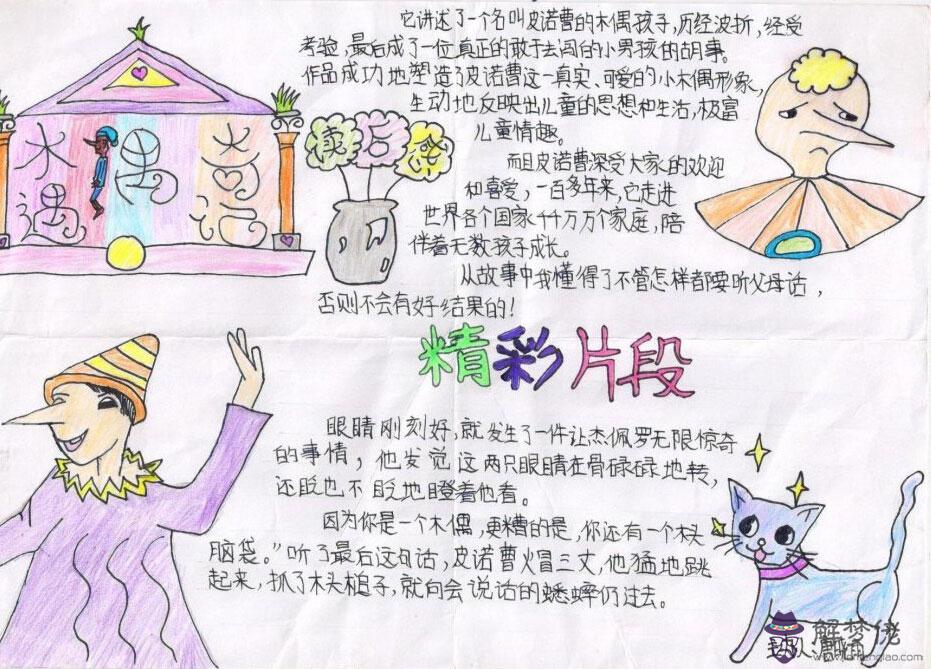 木偶奇遇记
读后感
它讲述了一个名叫皮诺曹的木偶孩子,历经波折,经受
考验,最后成了一位真正的敢于去闯的小男孩的胡事。
作品成功地塑造了皮诺曹这一真实、可爱的小木偶形象,
生动地反映出儿童的思想和生活,极富
儿童情趣。
而且皮诺曹深受大家的欢迎
和喜爱,一百多年来,它走进
世界各个国家千千万万个家庭,陪
伴着无数孩子成长。
从故事中我懂得了不管怎样都要听父母话,
否则不会有好结果的!
精彩片段
眼睛刚刻好,就发生了一件让杰佩罗无限惊奇
的事情,他发觉这两只眼睛在骨碌碌地转,
还眨也不眨地瞪着他看。
因为你是一个木偶,更糟的是,你还有一个木头
脑袋。”听了最后这句话,皮诺曹火冒三丈,他猛地跳
起来,抓了木头槌子,就向会说话的蟋蟀扔过去。
解梦佬
www.jiemenglao.com